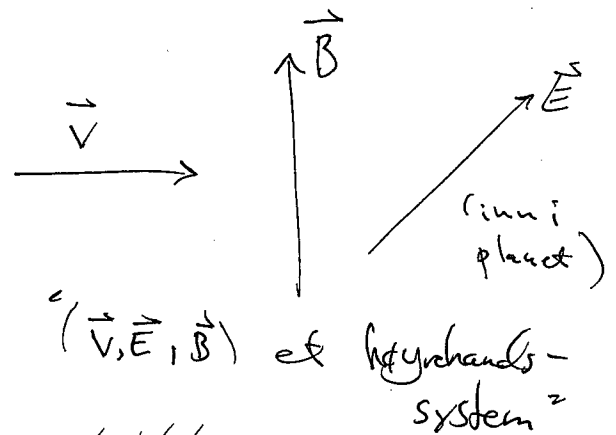 V⃗
B⃗
E⃗
(inn i
planet)
"(V⃗, E⃗, B⃗) et høyrehands-
system"